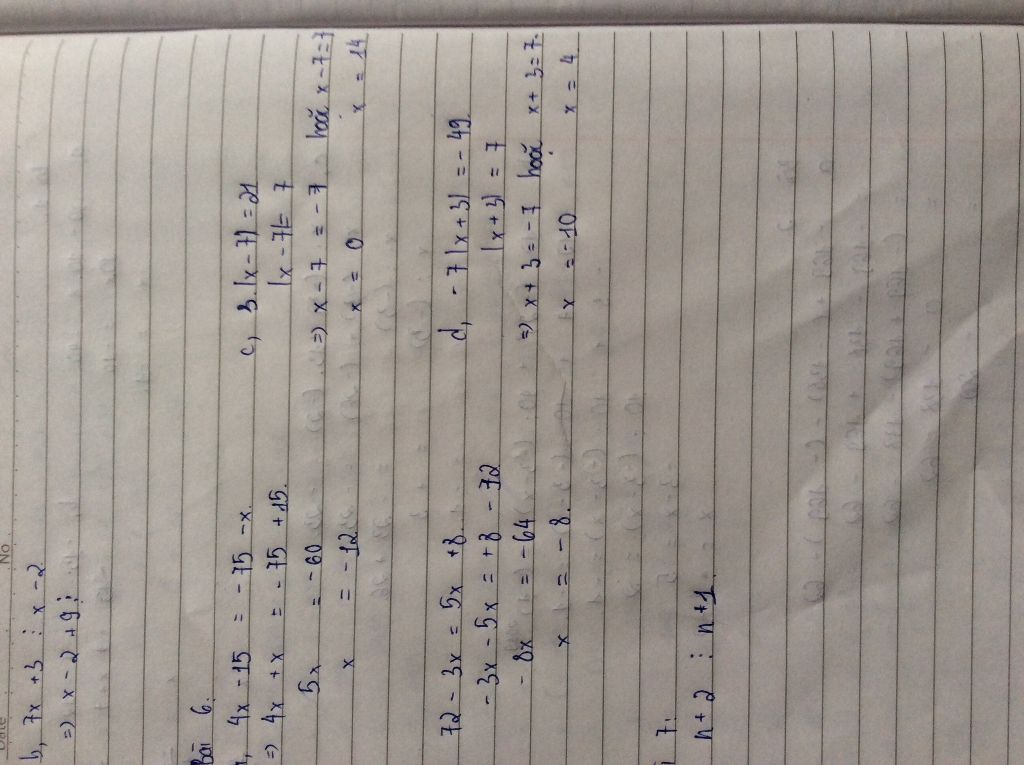 No
b, 7x + 3 ⋮ x - 2
=) x - 2 + 9 ⋮
Bài 6:
4x - 15 = - 75 - x
=) 4x + x = - 75 + 15.
5x = - 60
x = - 12
72 - 3x = 5x + 8.
- 3x - 5x = + 8 - 72
- 8x = - 64
x = - 8.
c, 3. |x - 7| = 21
|x - 7| = 7
=) x - 7 = - 7 hoặc x - 7 = 7
x = 0 x = 14
d, - 7 |x + 3| = - 49
|x + 3| = 7
=) x + 3 = - 7 hoặc x + 3 = 7.
x = - 10 x = 4
7:
n + 2 ⋮ n + 1